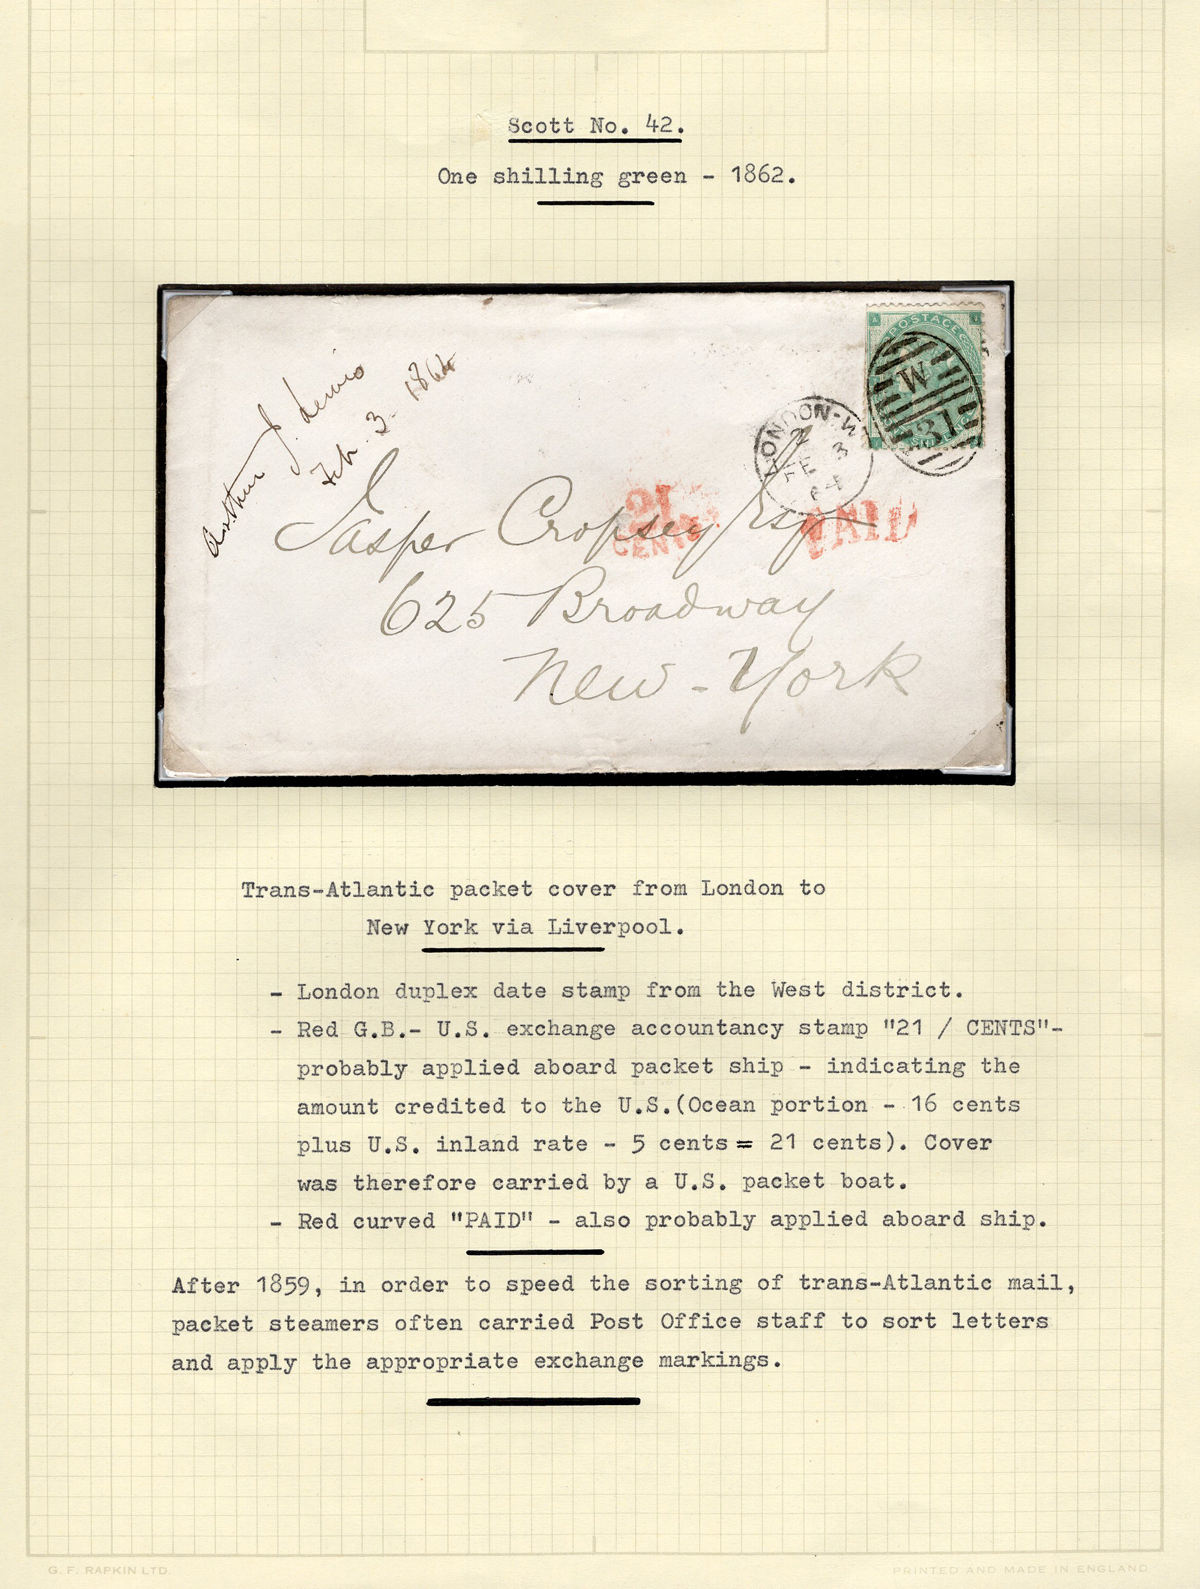 Scott No. 42.
One shilling green - 1862.
Arthur J. Lewis
Feb. 3. 1864
POSTAGE
W
37
LONDON-W
2
FE 3
64
21
CENTS
PAID
Jasper Cropsey Esq
625 Broadway
New-York
Trans-Atlantic packet cover from London to
New York via Liverpool.
- London duplex date stamp from the West district.
- Red G.B.- U.S. exchange accountancy stamp "21 / CENTS"-
probably applied aboard packet ship - indicating the
amount credited to the U.S.(Ocean portion - 16 cents
plus U.S. inland rate - 5 cents = 21 cents). Cover
was therefore carried by a U.S. packet boat.
- Red curved "PAID" - also probably applied aboard ship.
After 1859, in order to speed the sorting of trans-Atlantic mail,
packet steamers often carried Post Office staff to sort letters
and apply the appropriate exchange markings.
G. F. RAPKIN LTD.
PRINTED AND MADE IN ENGLAND